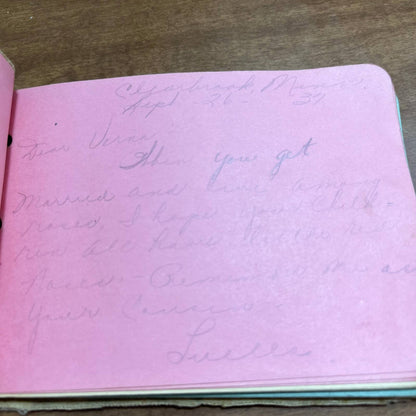 Clearbrook, Minn.
Sept 26 - 37
Dear Verna:
When you get
Married and live among
roses, I hope your child-
ren all have little red
Noses - Remember me as
Your Cousin -
Luella